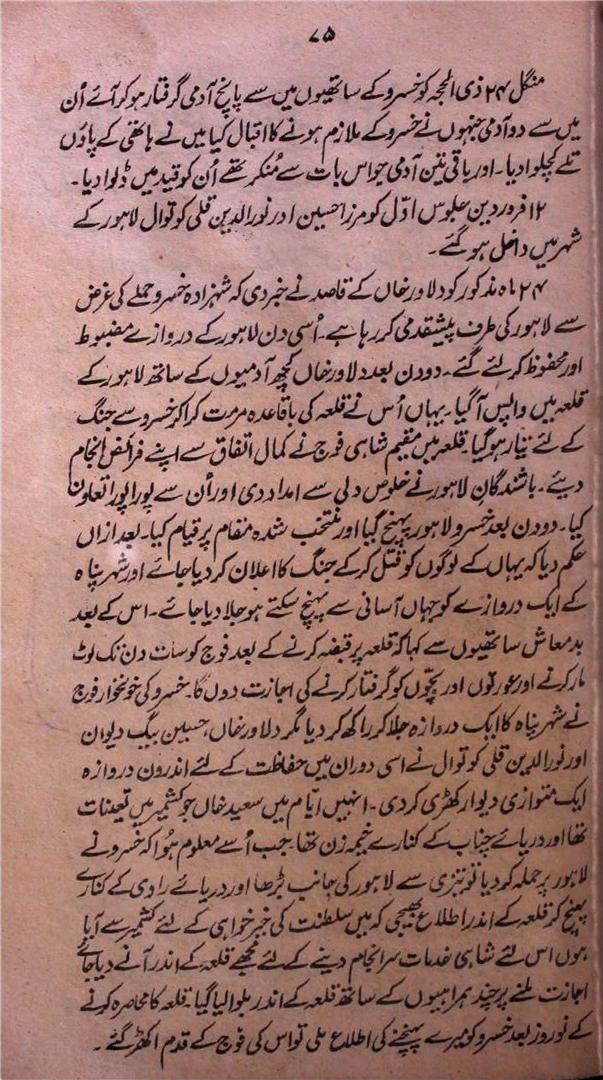 ۷۵
منگل ۲۴ ذی الحجہ کو خسرو کے ساتھیوں میں سے پانچ آدمی گرفتار ہو کر آئے اُن
میں سے دو آدمی جنہوں نے خسرو کے ملازم ہونے کا اقبال کیا میں نے ہاتھی کے پاؤں
تلے کچلوا دیا۔ اور باقی تین آدمی جو اس بات سے مُنکر تھے اُن کو قید میں ڈلوا دیا۔
۱۲ فروردین جلوس اوّل کو مرزا حسین اور نورالدین قلی کوتوال لاہور کے
شہر میں داخل ہو گئے۔
۲۴ ماہ مذکور کو دلاور خاں کے قاصد نے خبر دی کہ شہزادہ خسرو حملے کی غرض
سے لاہور کی طرف پیشقدمی کر رہا ہے۔ اُسی دن لاہور کے دروازے مضبوط
اور محفوظ کر لئے گئے۔ دو دن بعد دلاور خاں کچھ آدمیوں کے ساتھ لاہور کے
قلعہ میں واپس آ گیا۔ یہاں اُس نے قلعہ کی باقاعدہ مرمت کرا کر خسرو سے جنگ
کے لئے تیار ہو گیا۔ قلعہ میں مقیم شاہی فوج نے کمال اتفاق سے اپنے فرائض انجام
دیئے۔ باشندگانِ لاہور نے خلوص دلی سے امداد دی اور اُن سے پورا پورا تعاون
کیا۔ دو دن بعد خسرو لاہور پہنچ گیا اور منتخب شدہ مقام پر قیام کیا۔ بعد ازاں
حکم دیا کہ یہاں کے لوگوں کو قتل کر کے جنگ کا اعلان کر دیا جائے اور شہر پناہ
کے ایک دروازے کو جہاں آسانی سے پہنچ سکتے ہو جلا دیا جائے۔ اس کے بعد
بدمعاش ساتھیوں سے کہا کہ قلعہ پر قبضہ کرنے کے بعد فوج کو سات دن تک لوٹ
مار کرنے اور عورتوں اور بچّوں کو گرفتار کرنے کی اجازت دوں گا۔ خسرو کی خونخوار فوج
نے شہر پناہ کا ایک دروازہ جلا کر راکھ کر دیا مگر دلاور خاں، حسین بیگ دیوان
اور نورالدین قلی کوتوال نے اسی دوران میں حفاظت کے لئے اندرون دروازہ
ایک متوازی دیوار کھڑی کر دی۔ انہیں ایّام میں سعید خاں جو کشمیر میں تعینات
تھا اور دریائے چناب کے کنارے خیمہ زن تھا، جب اُسے معلوم ہوُا کہ خسرو نے
لاہور پر حملہ کر دیا تو تیزی سے لاہور کی جانب بڑھا اور دریائے راوی کے کنارے
پہنچ کر قلعہ کے اندر اطلاع بھیجی کہ میں سلطنت کی خیر خواہی کے لئے کشمیر سے آیا
ہوں اس لئے شاہی خدمات سرانجام دینے کے لئے مجھے قلعہ کے اندر آنے دیا جائے
اجازت ملنے پر چند ہمراہیوں کے ساتھ قلعہ کے اندر بلوا لیا گیا۔ قلعہ کا محاصرہ کرنے
کے نو روز بعد خسرو کو میرے پہنچنے کی اطلاع ملی تو اس کی فوج کے قدم اکھڑ گئے۔